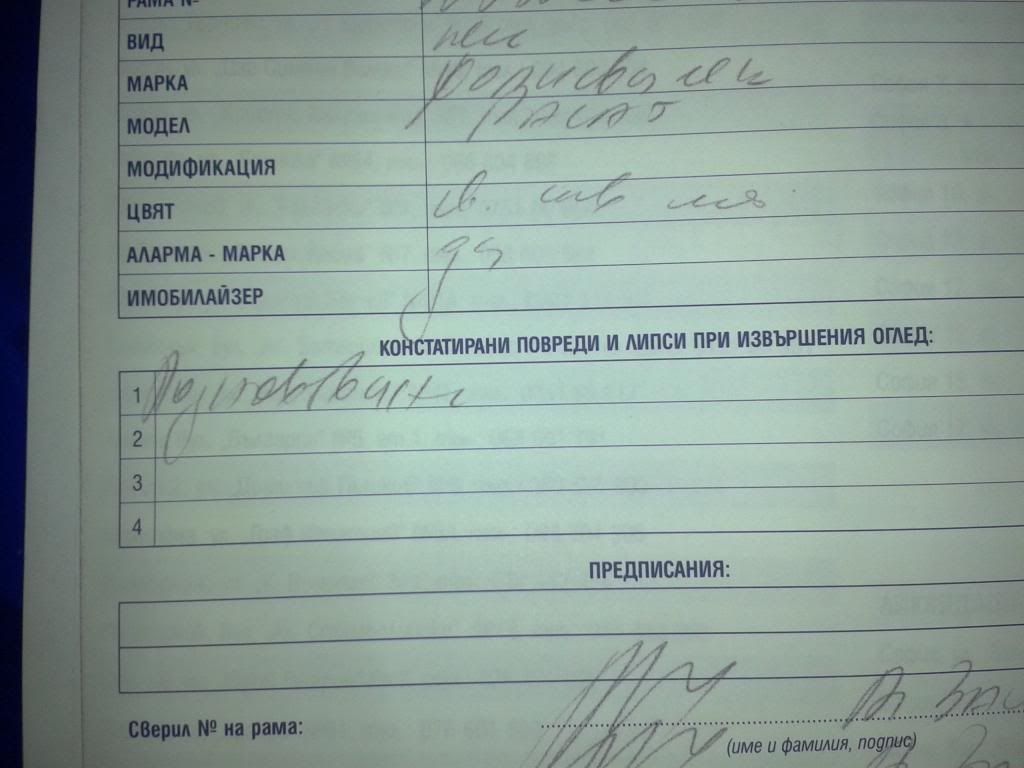 РАМА №
ВИД лек
МАРКА Фолксваген
МОДЕЛ ПАСАТ
МОДИФИКАЦИЯ
ЦВЯТ св. син
АЛАРМА - МАРКА да
ИМОБИЛАЙЗЕР
КОНСТАТИРАНИ ПОВРЕДИ И ЛИПСИ ПРИ ИЗВЪРШЕНИЯ ОГЛЕД:
1
2
3
4
ПРЕДПИСАНИЯ:
Сверил № на рама:
(име и фамилия, подпис)